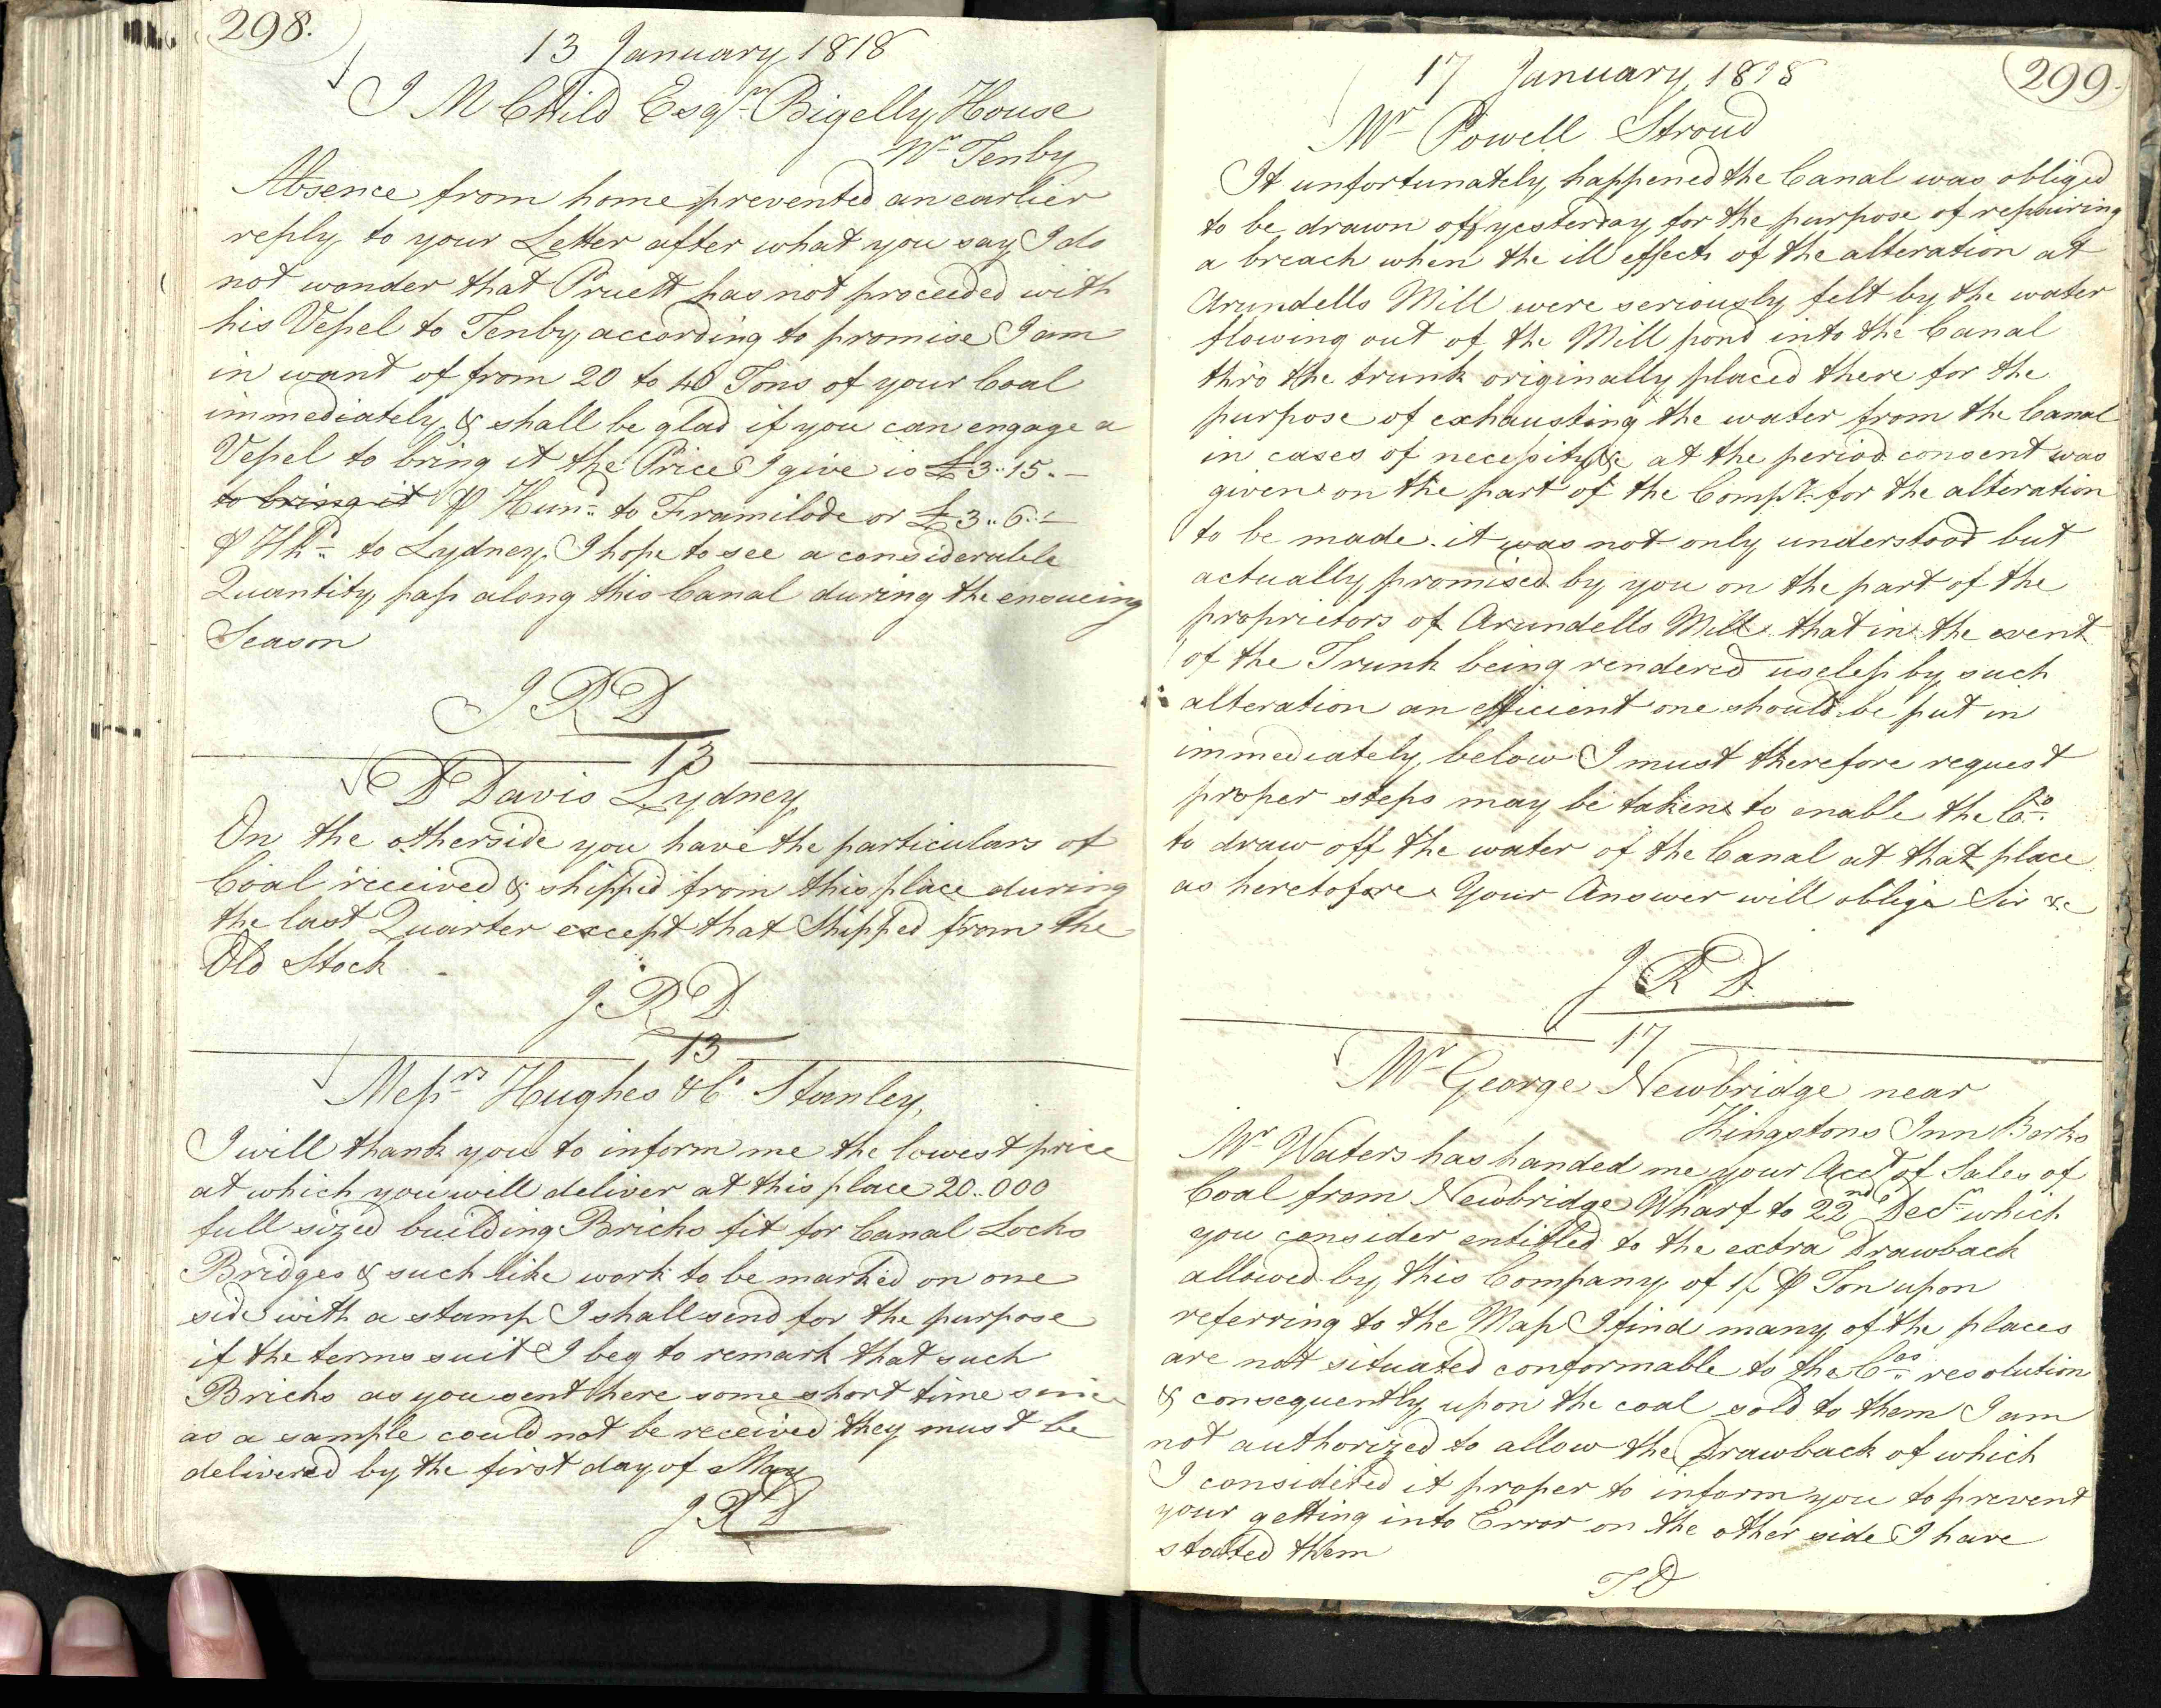 298.
13 January 1818
J M Child Esqr. Bigelly House
Nr Tenby
Absence from home prevented an earlier
reply to your Letter after what you say I do
not wonder that Pruett has not proceeded with
his Vessel to Tenby according to promise I am
in want of from 20 to 40 Tons of your Coal
immediately & shall be glad if you can engage a
Vessel to bring it the Price I give is £3..15..–
to bring it ⅌ Hund. to Framilode or £3..6..–
⅌ Hhd. to Lydney. I hope to see a considerable
Quantity pass along this Canal during the ensueing
Season
J R D
13
D Davis Lydney
On the otherside you have the particulars of
Coal received & shipped from this place during
the last Quarter except that Shipped from the
Old Stock
J R D
13
Messrs. Hughes & Co Stanley
I will thank you to inform me the lowest price
at which you will deliver at this place 20..000
full sized building Bricks fit for Canal Locks
Bridges & such like work to be marked on one
side with a stamp I shall send for the purpose
if the terms suit I beg to remark that such
Bricks as you sent here some short time since
as a sample could not be received they must be
delivered by the first day of May
J R D
299.
17 January, 1818
Mr Powell Stroud
It unfortunately happened the Canal was obliged
to be drawn off yesterday for the purpose of repairing
a breach when the ill effects of the alteration at
Arundells Mill were seriously felt by the water
flowing out of the Mill pond into the Canal
thro the trunk originally placed there for the
purpose of exhausting the water from the Canal
in cases of necessity &c at the period consent was
given on the part of the Compy. for the alteration
to be made. it was not only understood but
actually promised by you on the part of the
proprietors of Arundells Mill that in the event
of the Trunk being rendered useless by such
alteration an efficient one should be put in
immediately below I must therefore request
proper steps may be taken to enable the Co.
to draw off the water of the Canal at that place
as heretofore Your Answer will oblige Sir &c
J R D
17
Mr George Newbridge near
Kingstons Inn Berks
Mr Waters has handed me your Acct of Sales of
Coal from Newbridge Wharf to 22nd Decr. which
you consider entitled to the extra Drawback
allowed by this Company of 1/- ⅌ Ton upon
referring to the Map I find many of the places
are not situated conformable to the Cos. resolution
& consequently upon the coal sold to them I am
not authorized to allow the Drawback of which
I considered it proper to inform you to prevent
your getting into Error on the other side I have
stated them
J D